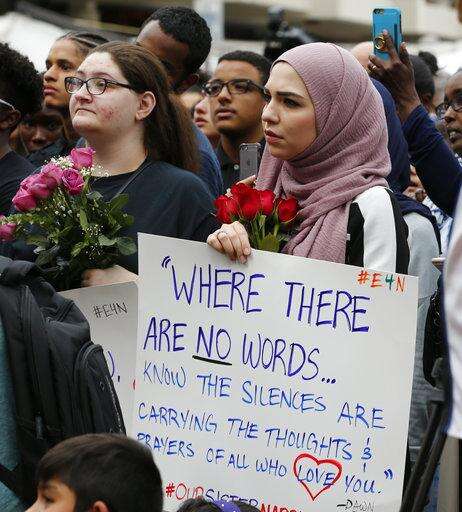 #E4N
"WHERE THERE
ARE NO WORDS...
KNOW THE SILENCES ARE
CARRYING THE THOUGHTS &
PRAYERS OF ALL WHO LOVE YOU."
-DAWN
#OURSISTER
#E4N